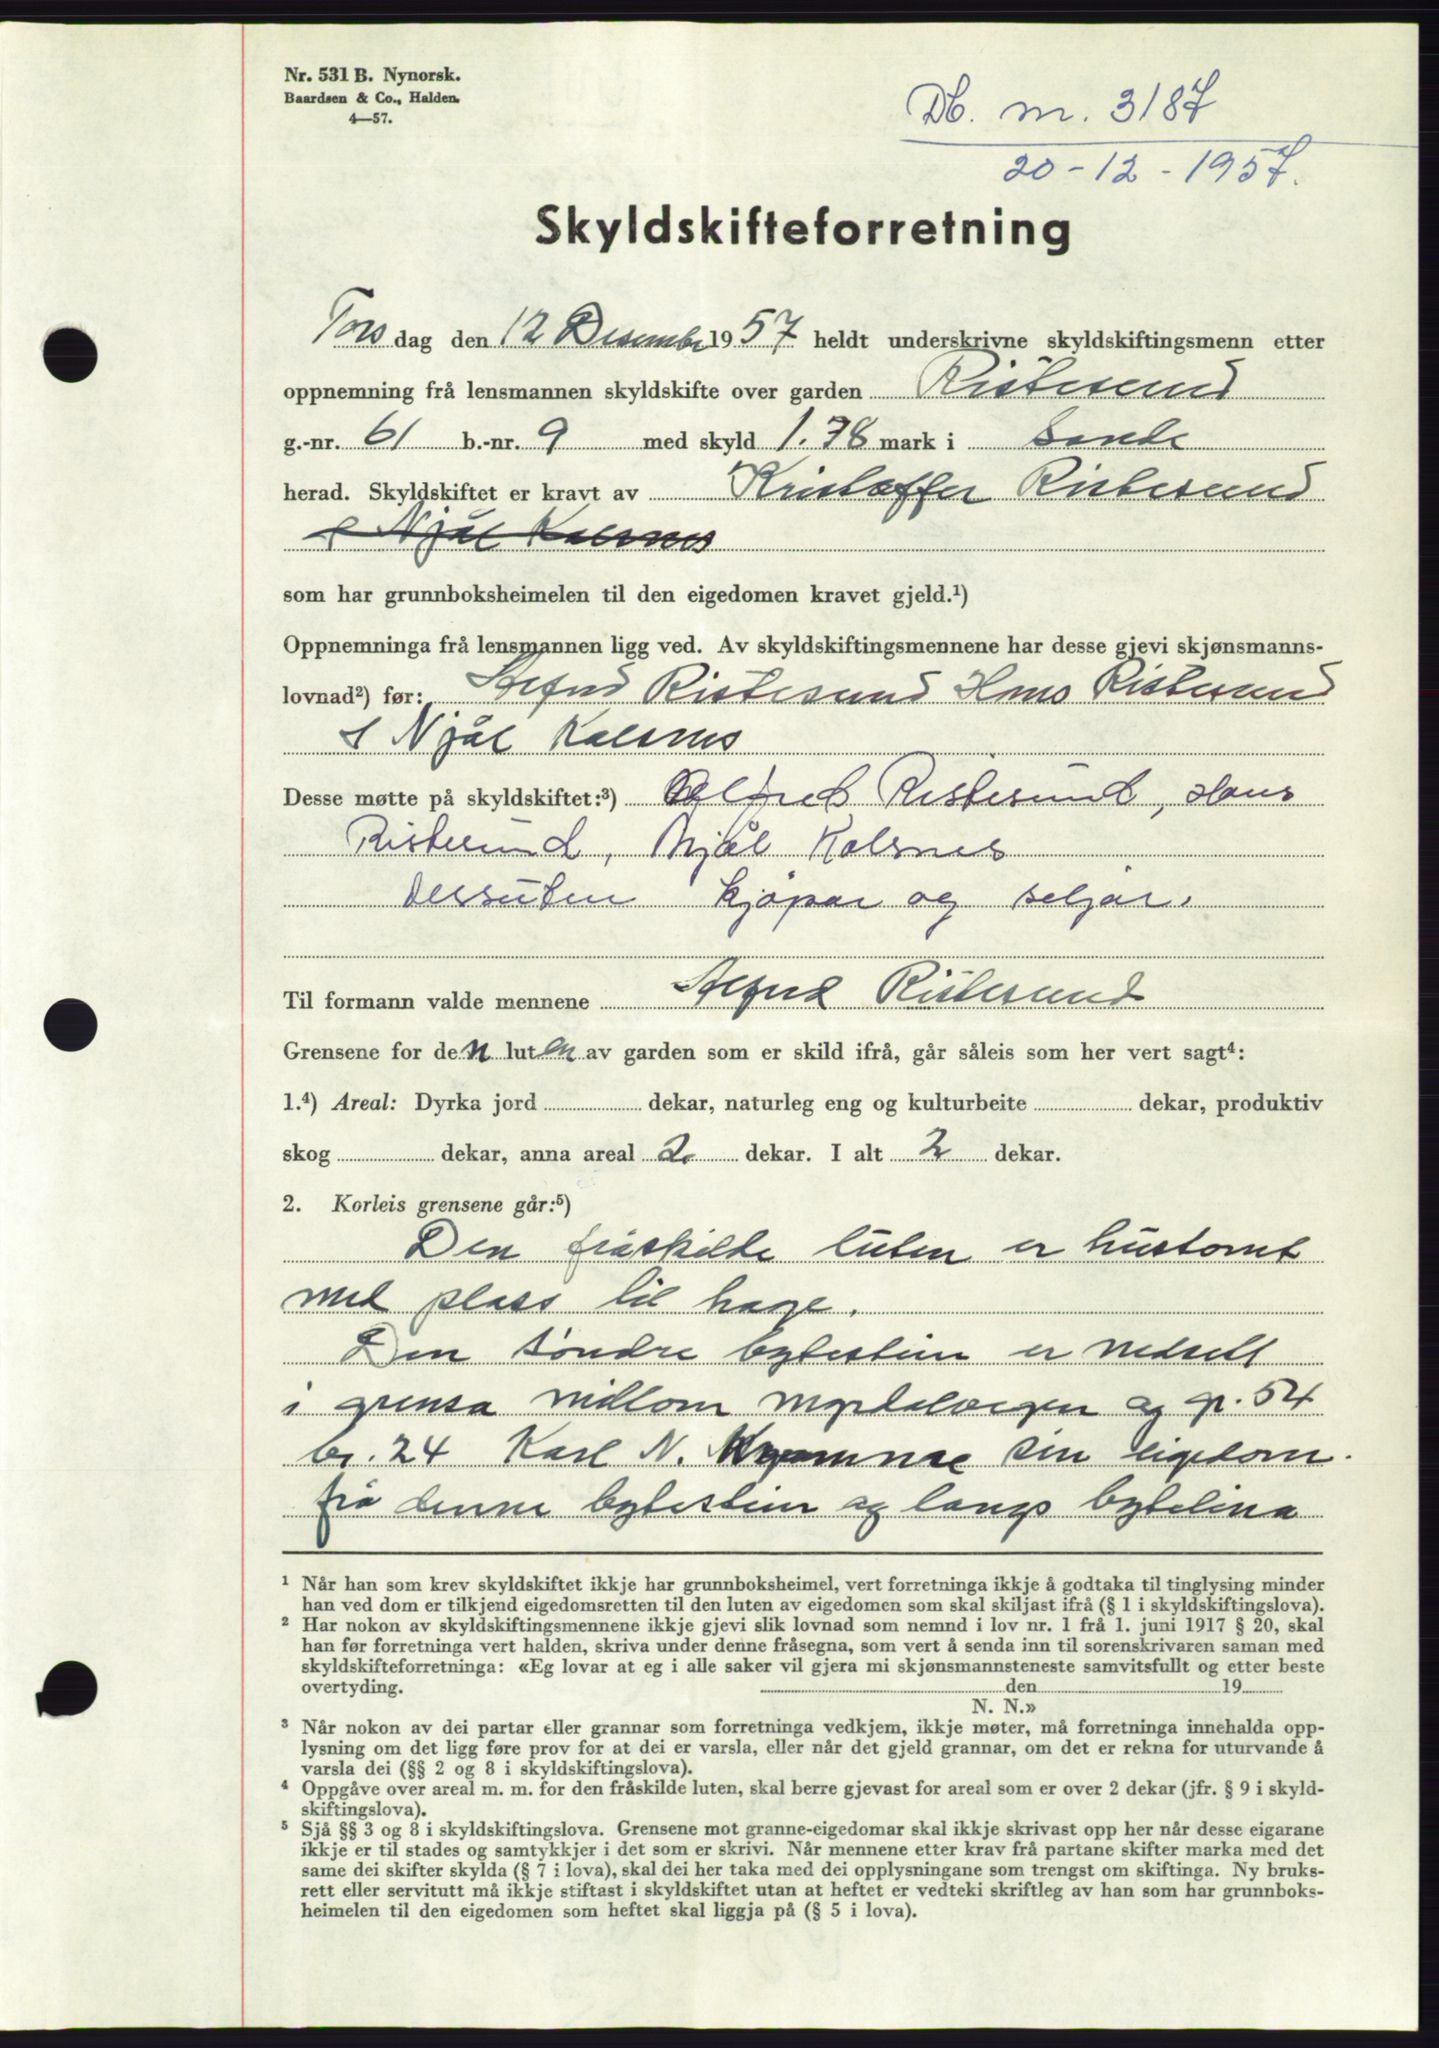 Nr. 531 B. Nynorsk.
Baardsen & Co., Halden.
4—57.
Db. nr. 3187
20-12-1957.
Skyldskifteforretning
Tors dag den 12 Desember 1957 heldt underskrivne skyldskiftingsmenn etter
oppnemning frå lensmannen skyldskifte over garden Ristesund
g.-nr. 61 b.-nr. 9 med skyld 1.78 mark i Sande
herad. Skyldskiftet er kravt av Kristoffer Ristesund
& Njål Kalsnes
som har grunnboksheimelen til den eigedomen kravet gjeld.¹)
Oppnemninga frå lensmannen ligg ved. Av skyldskiftingsmennene har desse gjevi skjønsmanns-
lovnad²) før: Alfred Ristesund Hans Ristesund
& Njål Kalsnes
Desse møtte på skyldskiftet:³) Alfred Ristesund, Hans
Ristesund, Njål Kalsnes
Dessuten kjøpar og seljar.
Til formann valde mennene Alfred Ristesund
Grensene for den luten av garden som er skild ifrå, går såleis som her vert sagt⁴:
1.⁴) Areal: Dyrka jord dekar, naturleg eng og kulturbeite dekar, produktiv
skog dekar, anna areal 2. dekar. I alt 2 dekar.
2. Korleis grensene går:⁵)
Den fråskilde luten er hustomt
med plass til hage.
Den søndre bytestein er nedsett
i grensa millom og gr. 54
br. 24 Karl N. sin eigedom.
frå denne bytestein og langs bytelina
¹ Når han som krev skyldskiftet ikkje har grunnboksheimel, vert forretninga ikkje å godtaka til tinglysing minder
han ved dom er tilkjend eigedomsretten til den luten av eigedomen som skal skiljast ifrå (§ 1 i skyldskiftingslova).
² Har nokon av skyldskiftingsmennene ikkje gjevi slik lovnad som nemnd i lov nr. 1 frå 1. juni 1917 § 20, skal
han før forretninga vert halden, skriva under denne fråsegna, som vert å senda inn til sorenskrivaren saman med
skyldskifteforretninga: «Eg lovar at eg i alle saker vil gjera mi skjønsmannsteneste samvitsfullt og etter beste
overtyding. den 19
N. N.»
³ Når nokon av dei partar eller grannar som forretninga vedkjem, ikkje møter, må forretninga innehalda opp-
lysning om det ligg føre prov for at dei er varsla, eller når det gjeld grannar, om det er rekna for uturvande å
varsla dei (§§ 2 og 8 i skyldskiftingslova).
⁴ Oppgåve over areal m. m. for den fråskilde luten, skal berre gjevast for areal som er over 2 dekar (jfr. § 9 i skyld-
skiftingslova).
⁵ Sjå §§ 3 og 8 i skyldskiftingslova. Grensene mot granne-eigedomar skal ikkje skrivast opp her når desse eigarane
ikkje er til stades og samtykkjer i det som er skrivi. Når mennene etter krav frå partane skifter marka med det
same dei skifter skylda (§ 7 i lova), skal dei her taka med dei opplysningane som trengst om skiftinga. Ny bruks-
rett eller servitutt må ikkje stiftast i skyldskiftet utan at heftet er vedteki skriftleg av han som har grunnboks-
heimelen til den eigedomen som heftet skal liggja på (§ 5 i lova).